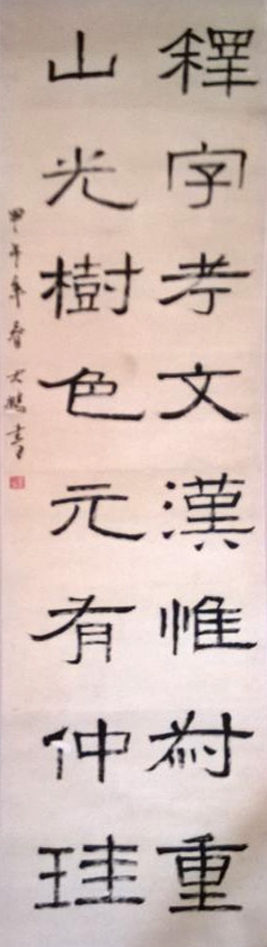 釋字考文漢惟叔重
山光樹色元有仲珪
甲午年春大書